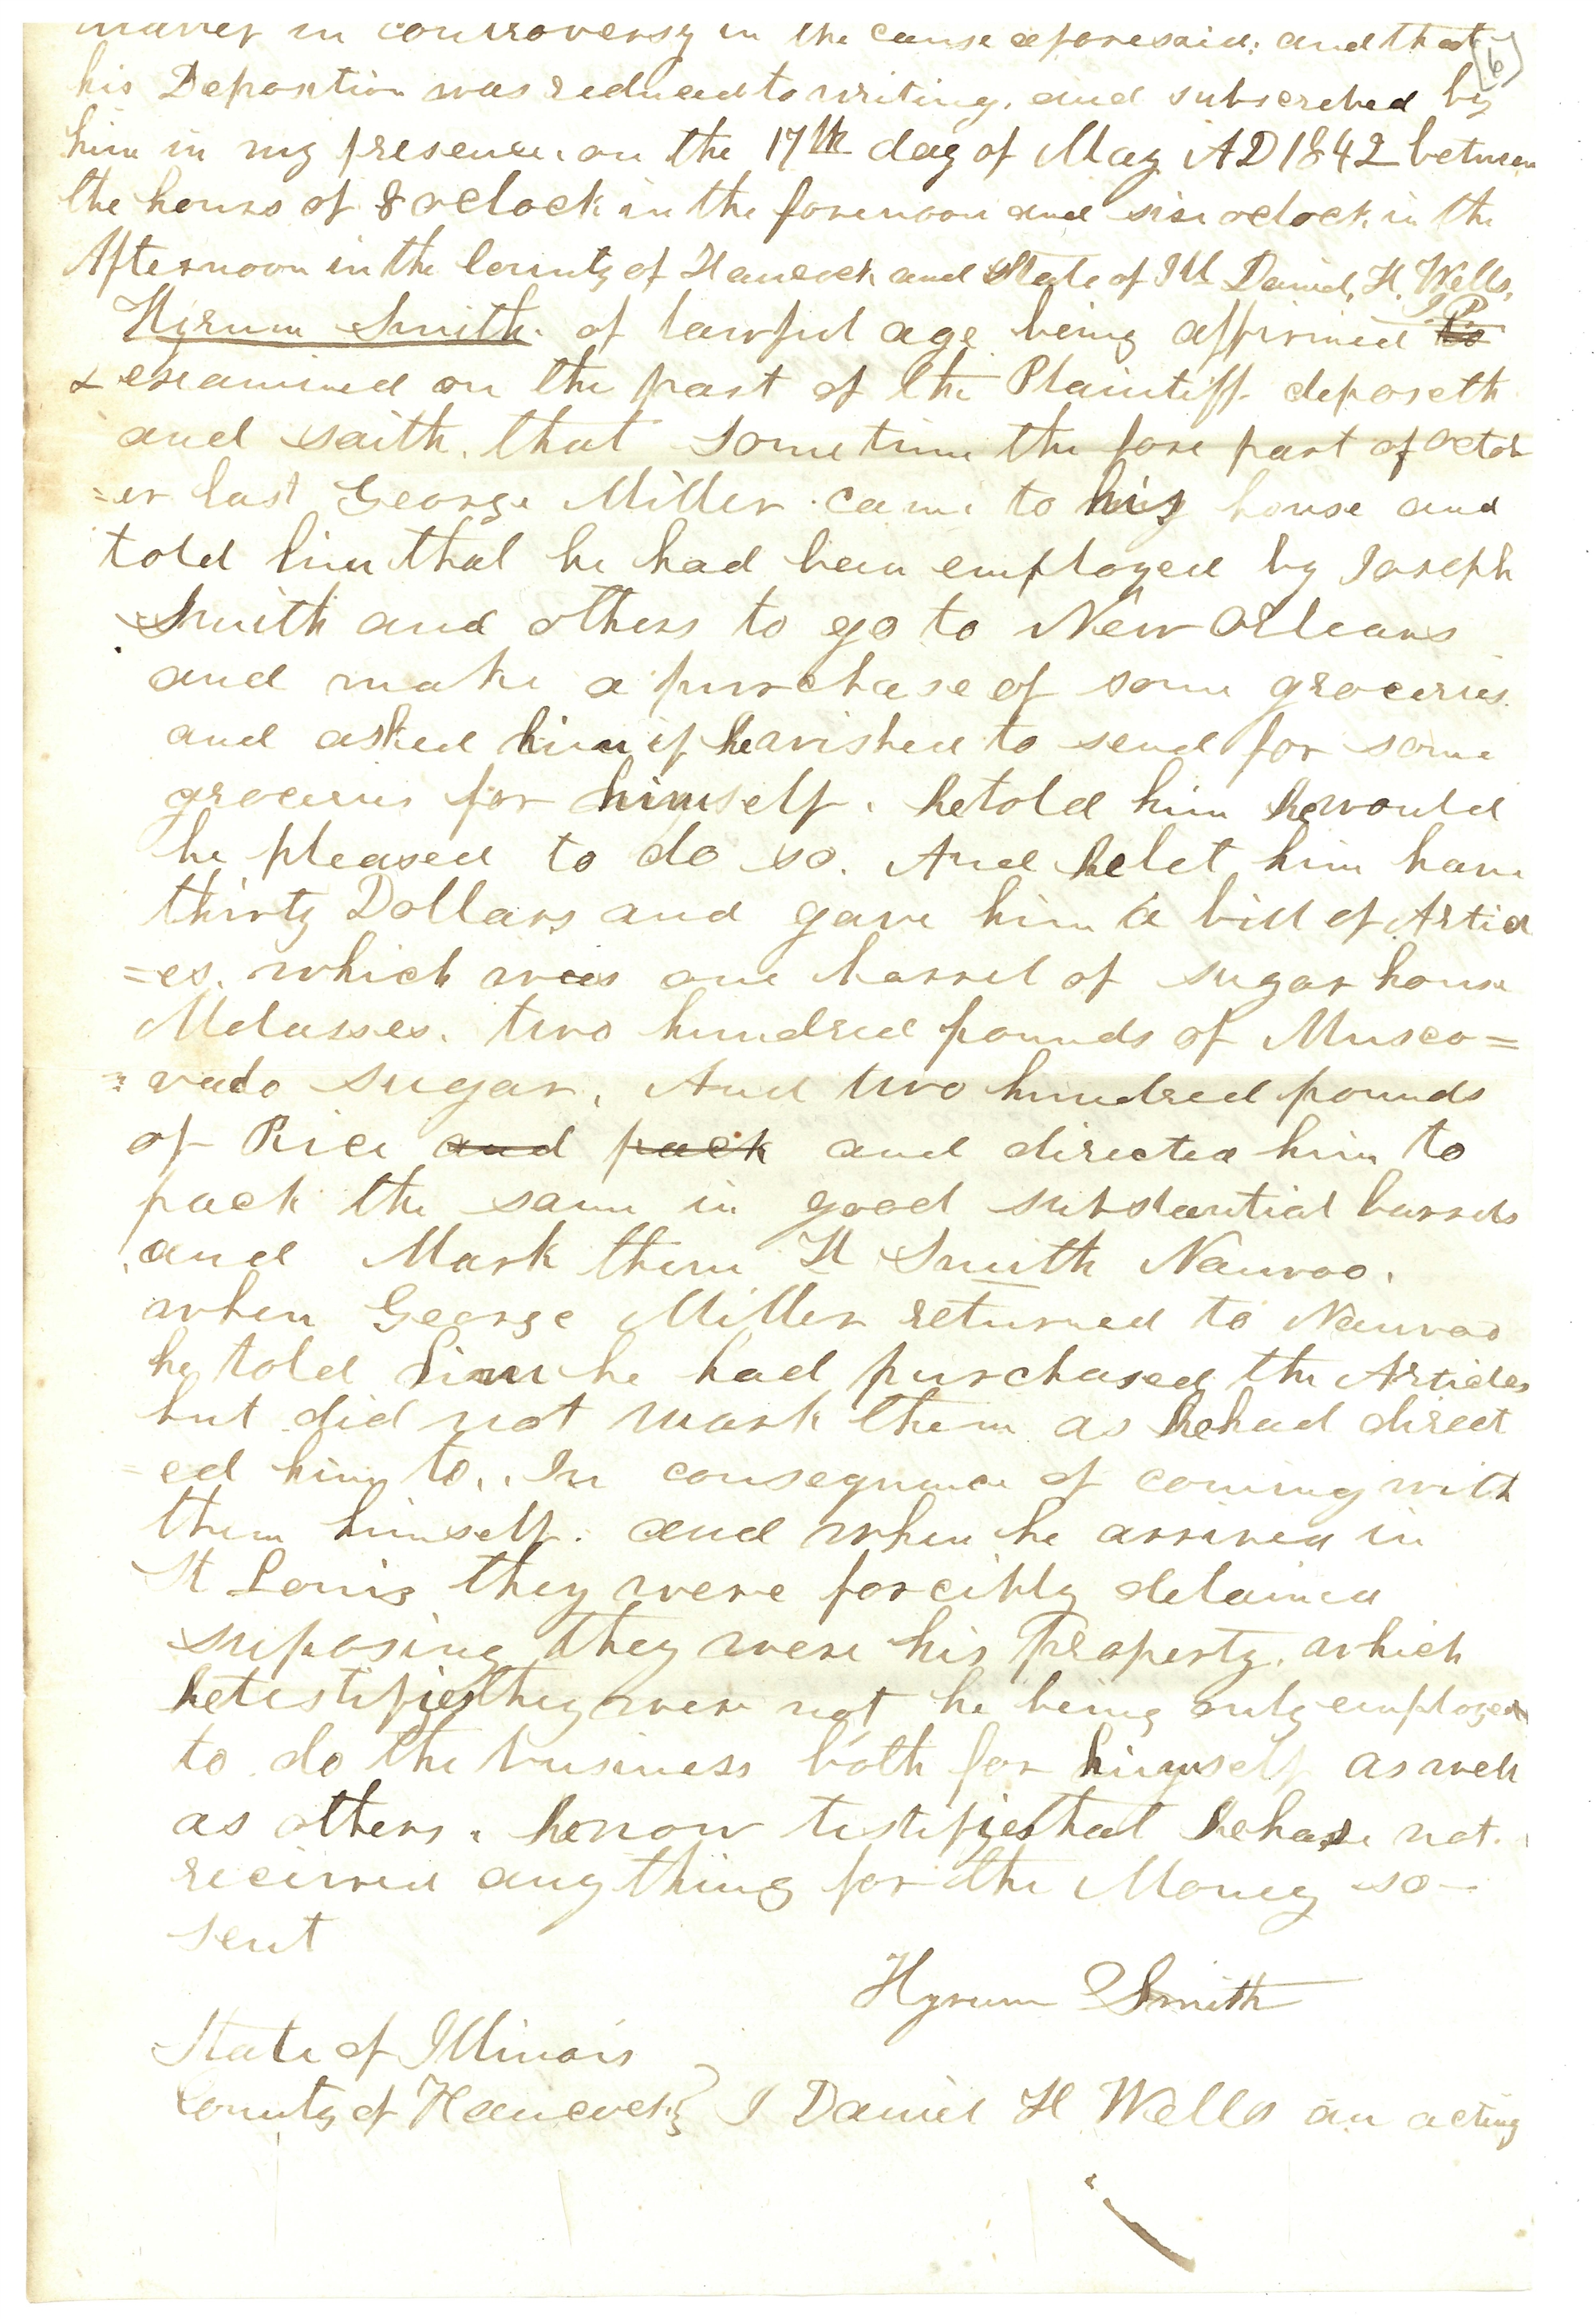 matter in controversy in the cause aforesaid; and that
(6)
his Deposition was reduced to writing, and subscribed by
him in my presence, on the 17th day of May AD 1842 between
the hours of 8 oClock in the forenoon and six oclock in the
Afternoon in the County of Hancock and State of Ill Daniel. H. Wells,
J.P.
Hyrum Smith. of lawful age being affirmed to
& examined on the part of the Plaintiff deposeth
and saith. that sometime the fore part of Octob
=er last George Miller came to his house and
told him that he had been employed by Joseph
Smith and others to go to New Orleans
and make a purchase of some groceries
and asked him if he wished to send for some
groceries for himself. he told him he would
be pleased to do so. And he let him have
thirty Dollars and gave him a bill of Articl
=es. which was one barrel of sugar house
Molasses. two hundred pounds of Musco=
=vado sugar, And two hundred pounds
of Rice and pack and directed him to
pack the same in good substantial barrels
and Mark them H Smith Nauvoo.
when George Miller returned to Nauvoo
he told him he had purchased the Articles
but did not mark them as he had direct
=ed him to. In consequence of coming with
them himself. and when he arrived in
St Louis they were forcibly detained
suposing they were his Property, which
he testifies they were not he being only employed
to do the business both for himself as well
as others. he now testifies that he has not
received any thing for the Money so
sent
Hyrum Smith
State of Illinois
County of Hancock } I Daniel H Wells an acting